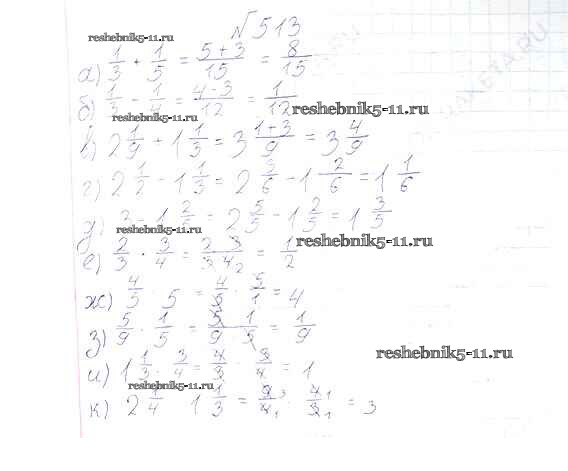 №513
reshebnik5-11.ru
а) 1/3 + 1/5 = (5+3)/15 = 8/15
б) 1/3 - 1/4 = (4-3)/12 = 1/12
reshebnik5-11.ru
reshebnik5-11.ru
в) 2 1/9 + 1 1/3 = 3 (1+3)/9 = 3 4/9
г) 2 1/2 - 1 1/3 = 2 3/6 - 1 2/6 = 1 1/6
д) 3 - 1 2/5 = 2 5/5 - 1 2/5 = 1 3/5
reshebnik5-11.ru
reshebnik5-11.ru
е) 2/3 · 3/4 = (2·3)/(3·4) 2 = 1/2
ж) 4/5 · 5 = 4/5 · 5/1 = 4
з) 5/9 · 1/5 = 5/9 · 1/5 = 1/9
reshebnik5-11.ru
и) 1 1/3 · 3/4 = 4/3 · 3/4 = 1
reshebnik5-11.ru
к) 2 1/4 · 1 1/3 = 9/4 · 4/3 = 3